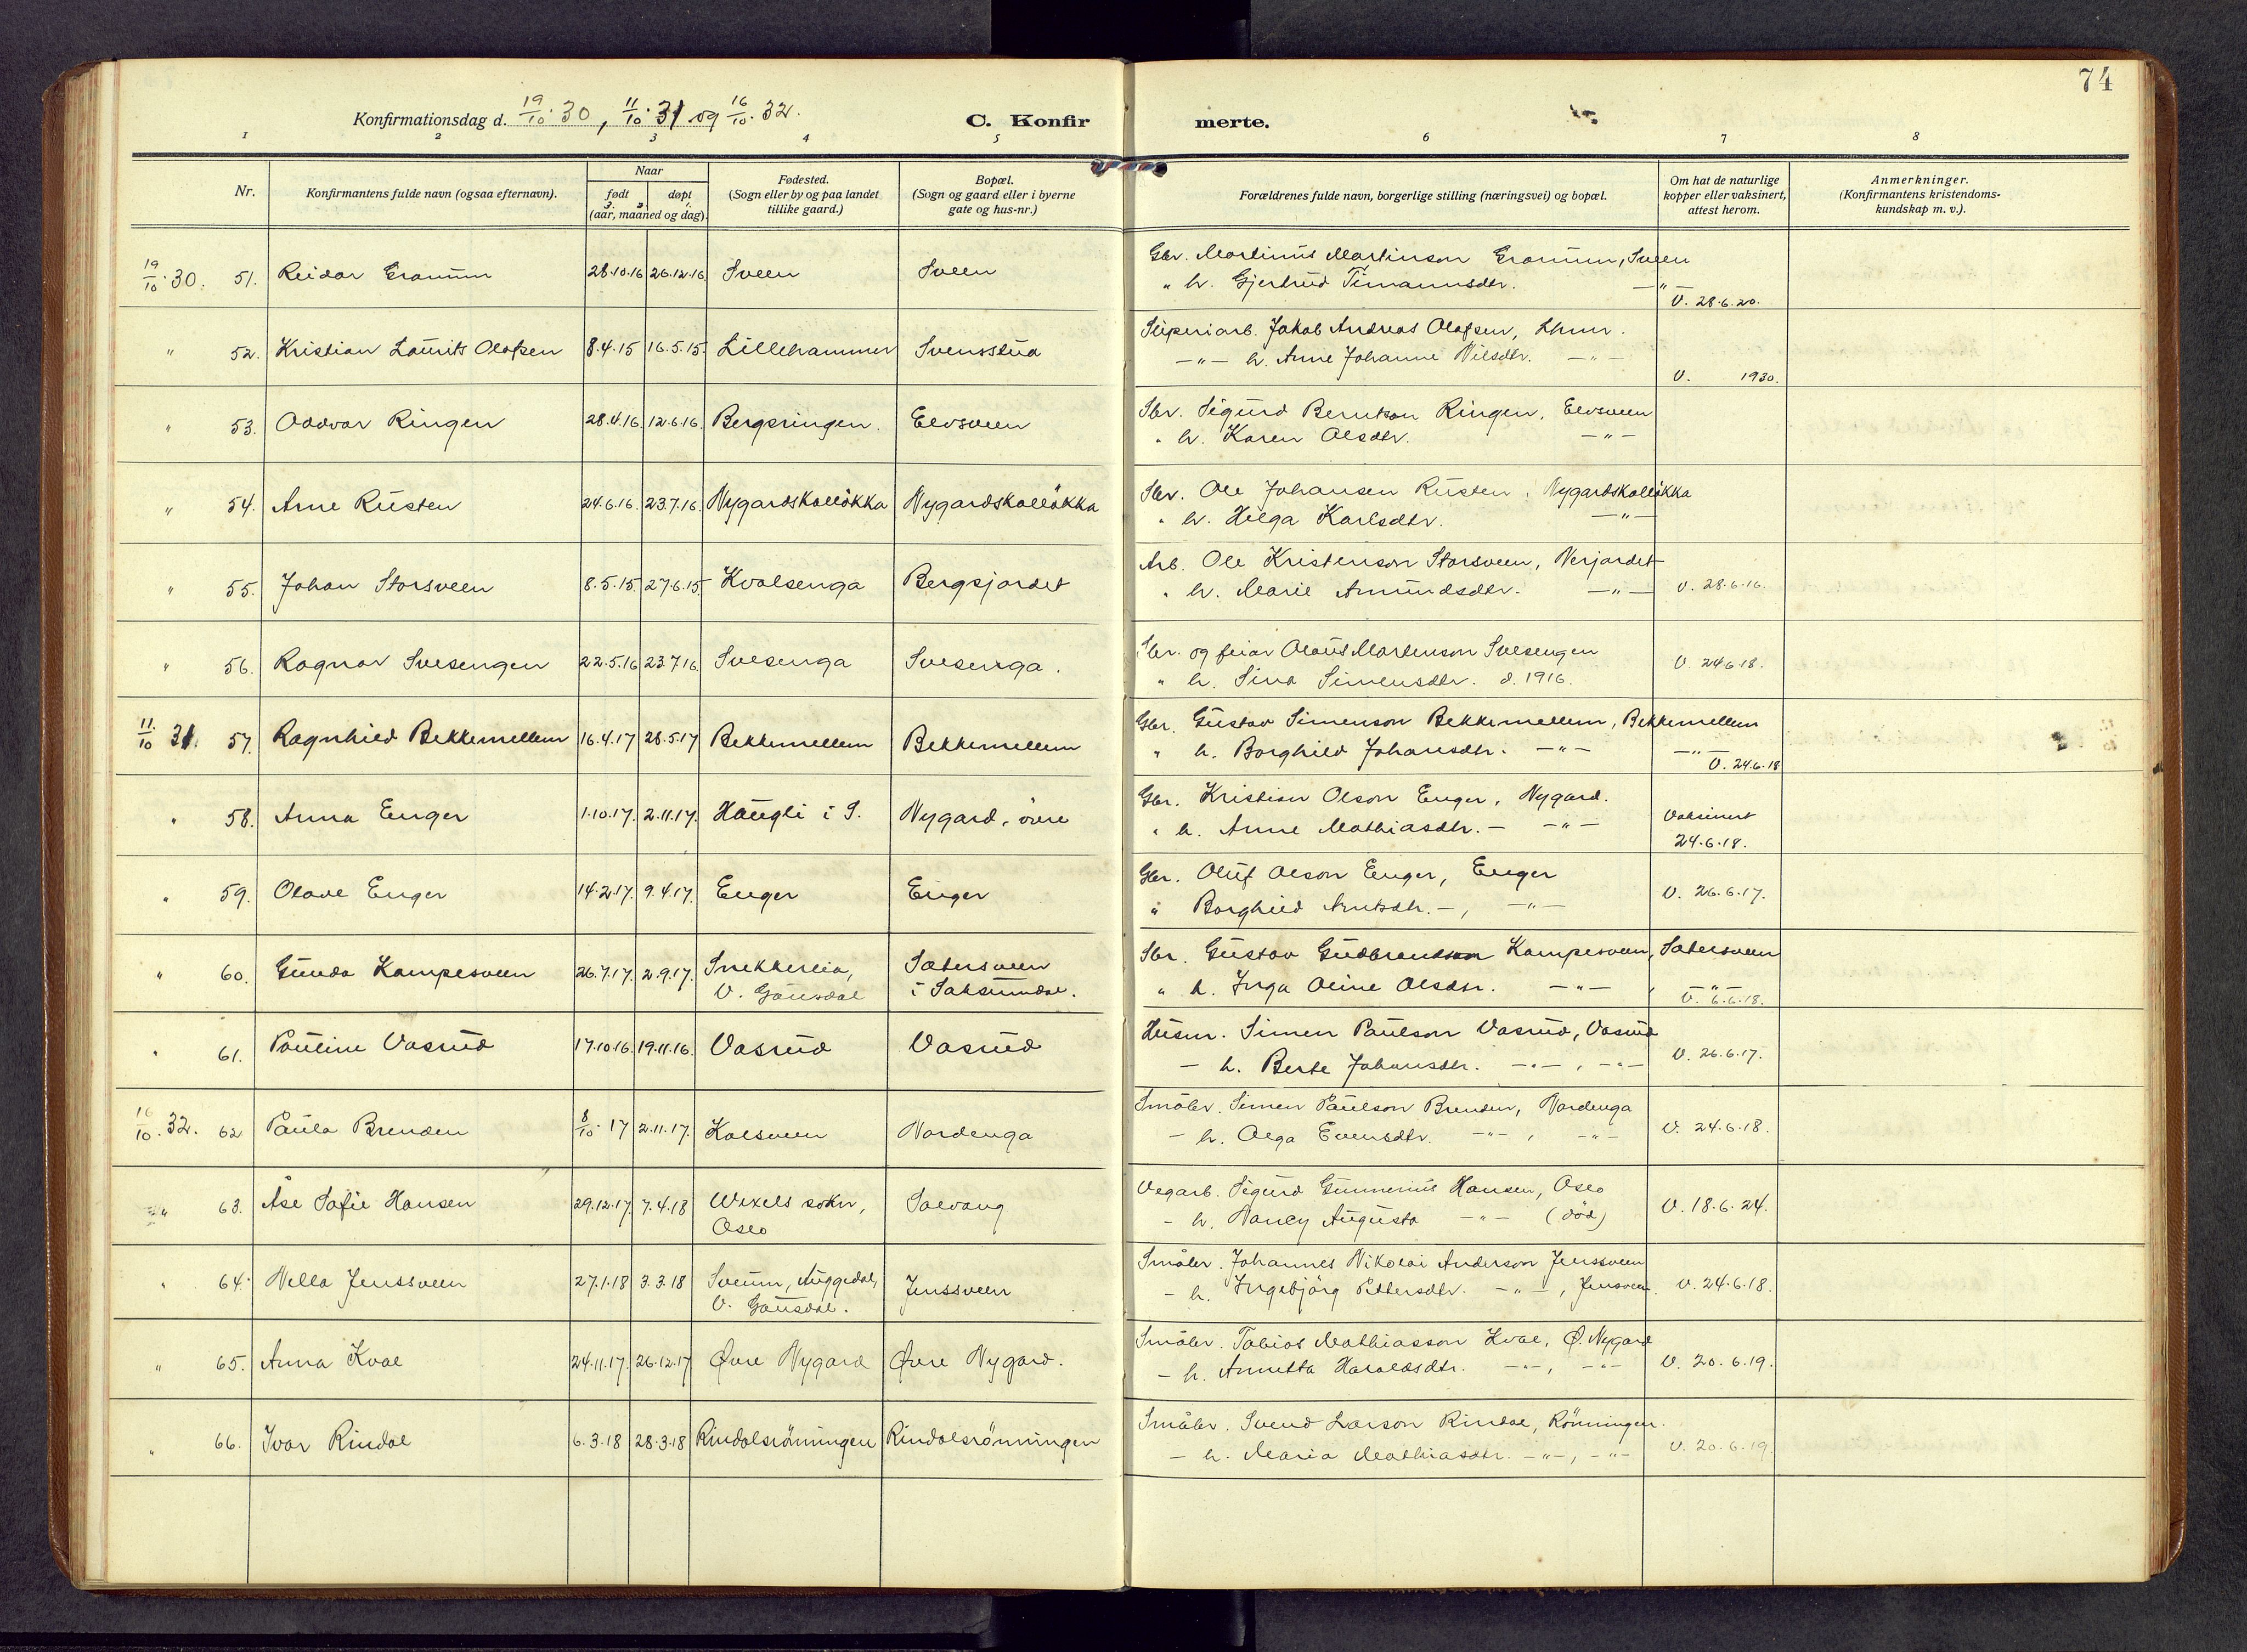 74
Konfirmationsdag d. 19/10.30, 11/10.31 og 16/10.32.
C. Konfir merte.
1 2 3 4 5 6 7 8
Nr.
Konfirmantens fulde navn (ogsaa efternavn).
Naar
født døpt
(aar, maaned og dag).
Fødested.
(Sogn eller by og paa landet
tillike gaard.)
Bopæl.
(Sogn og gaard eller i byerne
gate og hus-nr.)
Forældrenes fulde navn, borgerlige stilling (næringsvei) og bopæl.
Om hat de naturlige
kopper eller vaksinert,
attest herom.
Anmerkninger.
(Konfirmantens kristendoms-
kundskap m. v.).
19/10.30. 51. Reidar Granum 28.10.16 26.12.16 Sveen Sveen
Gbr. Martinus Martinson Granum, Sveen
" h. Gjertrud Timannsdtr. —"—
V. 28.6.20.
" 52. Kristian Laurits Olafsen 8.4.15 16.5.15. Lillehammer Svensstua
Sliperiarb. Jakob Andreas Olafsen, Lhmr.
—"— h. Anne Johanne Nilsdtr. —"—
V. 1930.
" 53. Oddvar Ringen 28.4.16. 12.6.16. Bergsringen. Elvsveen
Sbr. Sigurd Berntson Ringen, Elvsveen
" h. Karen Olsdtr. —"—
" 54. Arne Rusten 24.6.16. 23.7.16. Nygardskalløkka Nygardskalløkka
Sbr. Ole Johansen Rusten, Nygardskalløkka
" h. Helga Karlsdtr. —"—
" 55. Johan Storsveen 8.5.15. 27.6.15 Kvalsenga Bergsjordet
Arb. Ole Kristenson Storsveen, Nerjordet
" h. Marie Amundsdtr. —"—
V. 28.6.16.
" 56. Ragnar Svesengen 22.5.16 23.7.16 Svesenga Svesenga.
Sbr. og feiar Olaus Martenson Svesengen
" h. Sina Simensdtr. d. 1916.
V. 24.6.18.
11/10 31. 57. Ragnhild Bekkemellem 16.4.17 28.5.17 Bekkemellem Bekkemellem
Gbr. Gustav Simenson Bekkemellem, Bekkemellem
" h. Borghild Johansdtr. —"— —"—
V. 24.6.18
" 58. Anna Enger 1.10.17. 2.11.17. Haugli i S. Nygard, øvre
Gbr. Kristian Olson Enger, Nygard.
" h. Anne Mathiasdtr. — —"—
Vaksinert
24.6.18.
" 59. Olave Enger 14.2.17. 9.4.17. Enger Enger
Gbr. Oluf Olson Enger, Enger
" Borghild Arntsdtr. —, —"—
V. 26.6.17.
" 60. Gunda Kampesveen 26.7.17. 2.9.17. Snekkerlia,
V. Gausdal
Sætersveen
i Saksumdal.
Sbr. Gustav Gudbrandson Kampesveen, Sætersveen
" h. Inga Oline Olsdtr. —"— , —"—
V. 6.6.18.
" 61. Pauline Vasrud 17.10.16. 19.11.16. Vasrud Vasrud
Husm. Simen Paulson Vasrud, Vasrud
— h. Berte Johansdtr. —"—, —"—
V. 26.6.17.
16/10.32. 62 Paula Brenden 8/10.17 2.11.17. Kalsveen Nordenga
Småbr. Simen Paulson Brenden, Nordenga
— h. Olga Evensdtr. —"—, —"—
V. 24.6.18.
" 63. Åse Sofie Hansen 29.12.17 7.4.18 Wexels sokn,
Oslo
Solvang
Vegarb. Sigurd Gunnerius Hansen, Oslo
— h. Nancy Augusta —"— (død)
V. 18.6.24.
" 64. Nella Jenssveen 27.1.18 3.3.18 Sveum, Auggedal,
V. Gausdal.
Jenssveen
Småbr. Johannes Nikolai Anderson Jenssveen
— h. Ingebjörg Pettersdtr. —"—, Jenssveen.
V. 24.6.18.
" 65. Anna Kval 24.11.17. 26.12.17 Øvre Nygard Øvre Nygard.
Småbr. Tobias Mathiasson Kval, Ø. Nygard
— h. Annetta Haraldsdtr. —"—, —"—
V. 20.6.19.
" 66. Ivar Rindal 6.3.18 28.3.18 Rindalsrönningen Rindalsrönningen
Småbr. Svend Larson Rindal, Rönningen.
— h. Maria Mathiasdtr. —"—, —"—
V. 20.6.19.